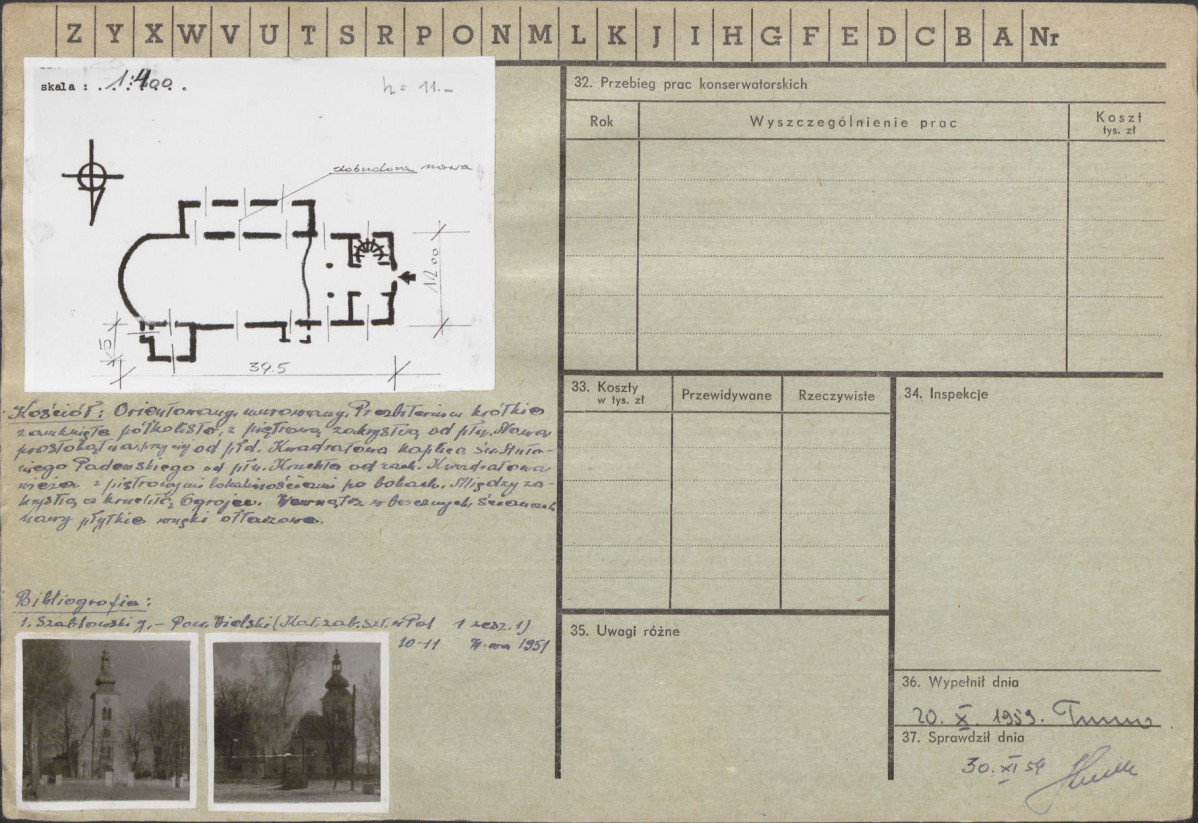 Z Y X W V U T S R P O N M L K J I H G F E D C B A Nr
skala : 1:400.
h = 11.-
dobudowa nowa
12.00
5
39.5
Kościół: Orientowany, murowany. Prezbiterium krótkie
zamknięte półkolisto, z piętrową zakrystią od płn. Nawa
prostokątna, przy niej od płd. Kwadratowa kaplica św. Anto-
niego Padewskiego od płn. Kruchta od zach. Kwadratowa
wieża z piętrowymi lokalnościami po bokach. Między za-
krystią a kruchtą Ogrojec. Wewnątrz w bocznych ścianach
nawy płytkie wnęki ołtarzowe.
Bibliografia:
1. Szablowski J. - Pow. Bielski (Kat. zab. Szt. w Pol 1 zesz. 1)
10-11 W-wa 1951
32. Przebieg prac konserwatorskich
Rok Wyszczególnienie prac Koszt
tys. zł
33. Koszty
w tys. zł
Przewidywane Rzeczywiste
34. Inspekcje
35. Uwagi różne
36. Wypełnił dnia
20. X. 1959.
37. Sprawdził dnia
30. XI 59